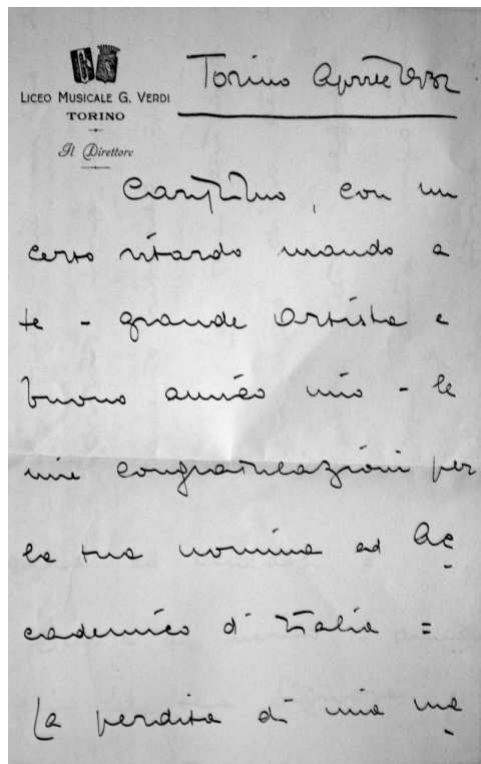 LICEO MUSICALE G. VERDI
TORINO
Il Direttore
Torino Aprile 1932
Carissimo, con un
certo ritardo mando a
te - grande artista e
buono amico mio - le
mie congratulazioni per
la tua nomina ad Ac
cademico d'Italia =
La perdita di mia ma